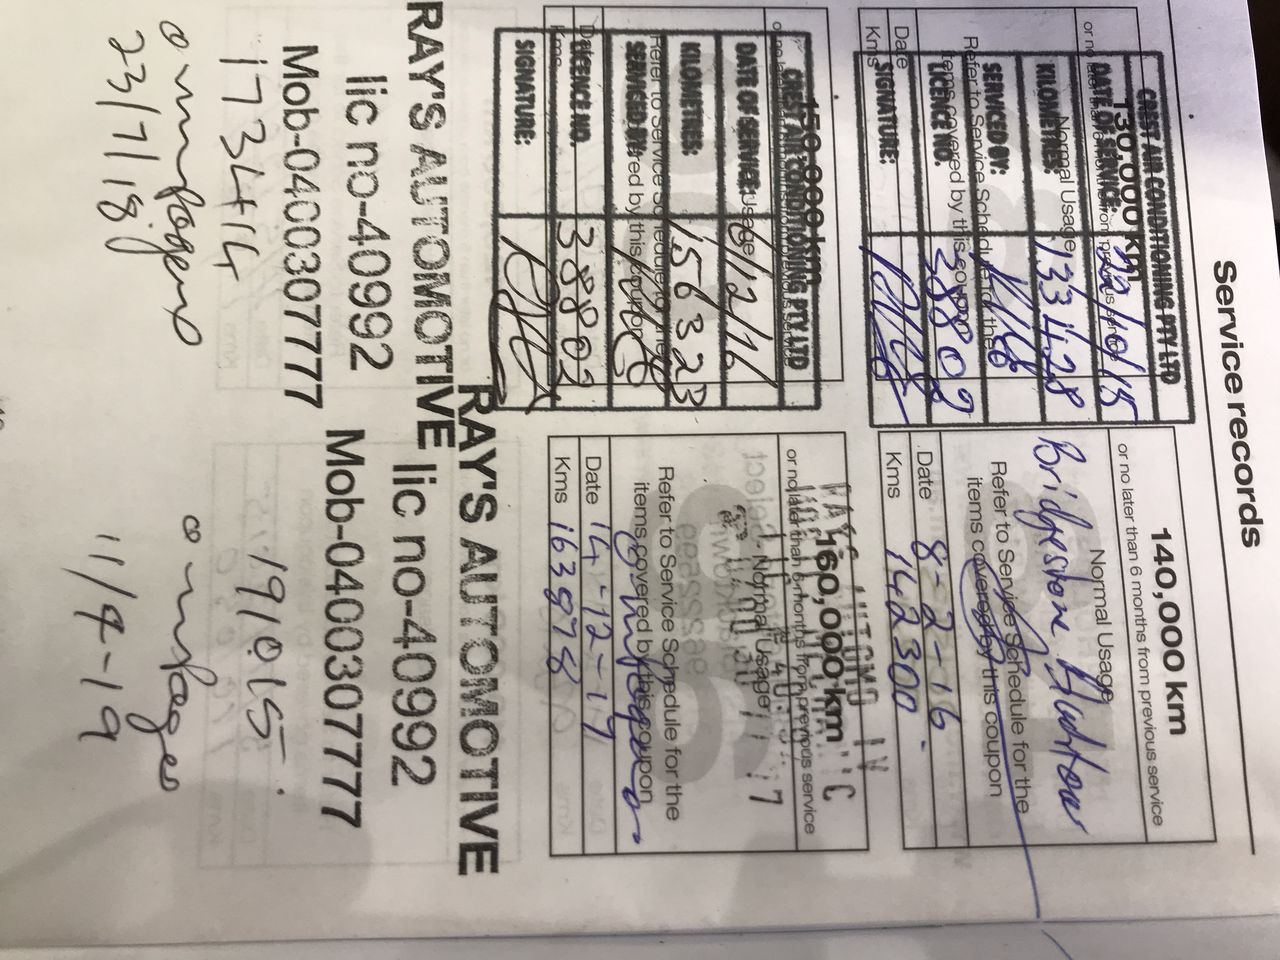 Service records
130,000 km
or no later than 6 months from previous service
Normal Usage
Refer to Service Schedule for the
items covered by this coupon
Date
Kms
CREST AIR CONDITIONING PTY LTD
DATE OF SERVICE: 22/10/15
KILOMETRES: 133428
SERVICED BY:
LICENCE NO. 38802
SIGNATURE:
140,000 km
or no later than 6 months from previous service
Normal Usage
Bridgestone
Refer to Service Schedule for the
items covered by this coupon
Date 8-2-16.
Kms 142300
150,000 km
Usage
Refer to Service Schedule for the
items covered by this coupon
Date
Kms
CREST AIR CONDITIONING PTY LTD
DATE OF SERVICE: 6/12/16
KILOMETRES: 156323
SERVICED BY:
LICENCE NO. 38802
SIGNATURE:
160,000 km
or no later than 6 months from previous service
Normal Usage
Refer to Service Schedule for the
items covered by this coupon
Date 14-12-17
Kms 163978
RAY'S AUTOMOTIVE
lic no-40992
Mob-0400307777
173414
23/7/18
RAY'S AUTOMOTIVE
lic no-40992
Mob-0400307777
191015.
11/4-19